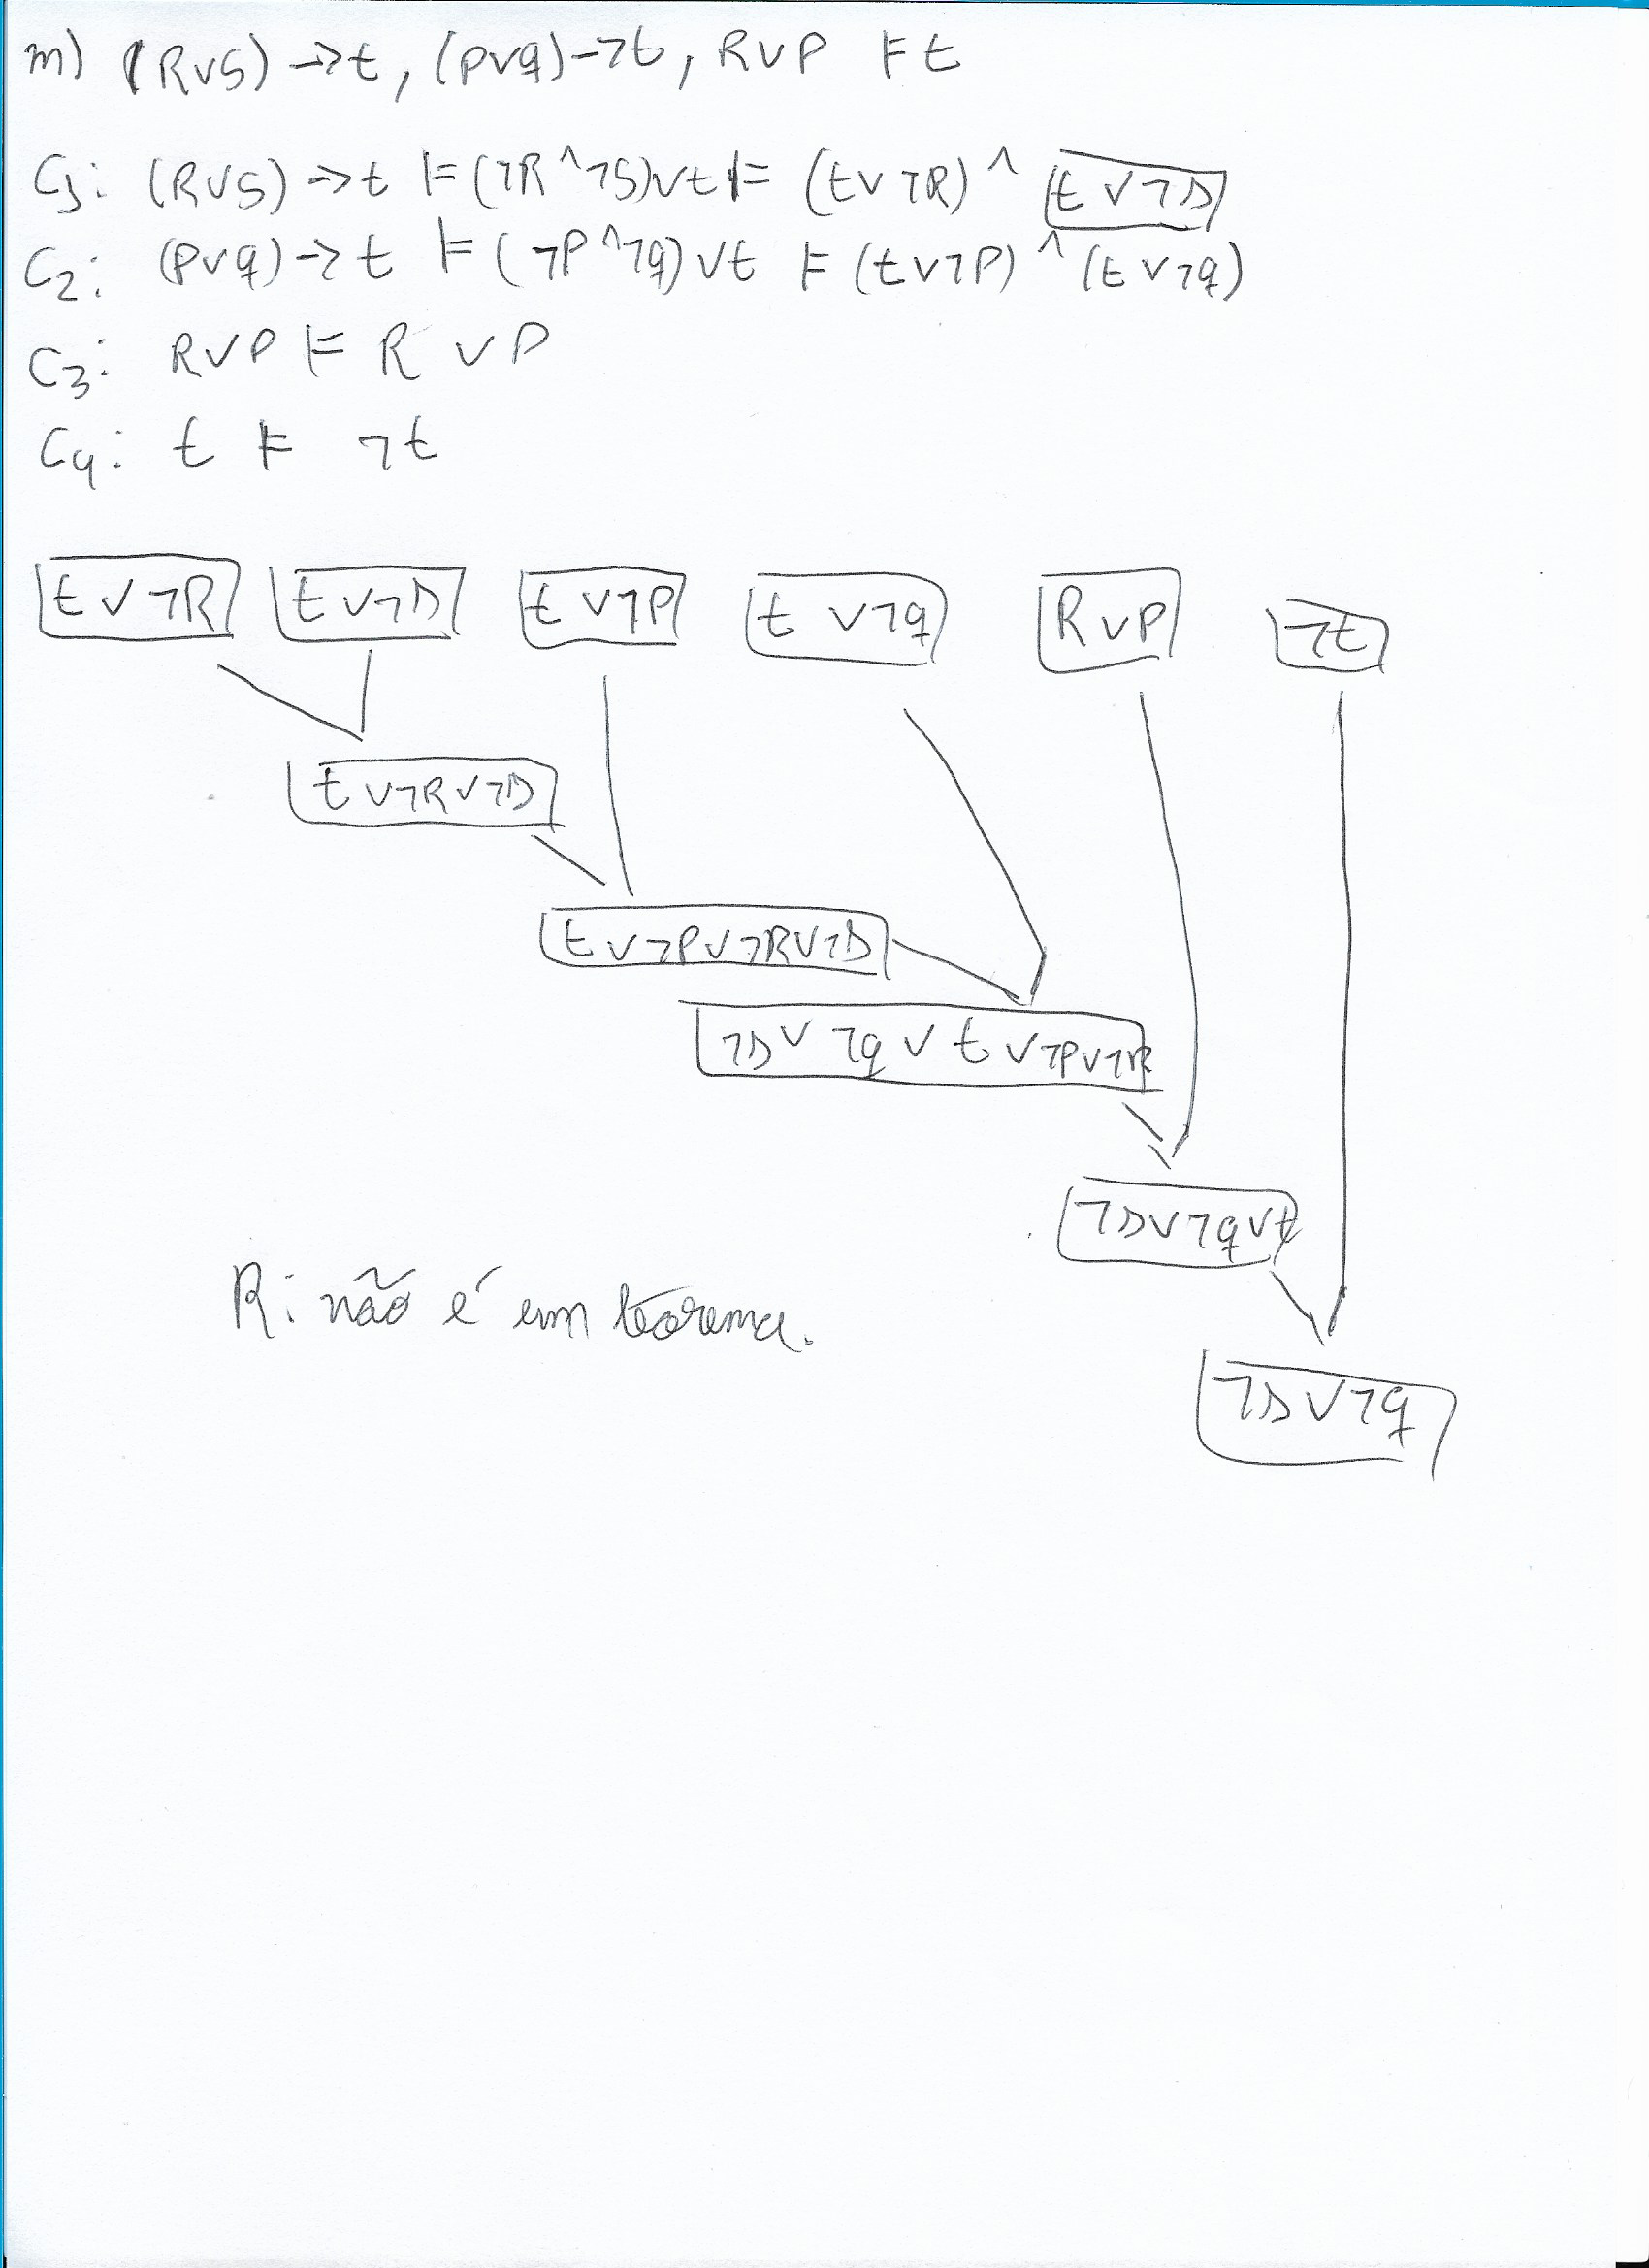 m) (R∨S) → t, (p∨q) → t, R∨P ⊨ t
C1: (R∨S) → t ⊨ (¬R ^ ¬S)∨t ⊨ (t∨¬R) ^ (t ∨ ¬s)
C2: (p∨q) → t ⊨ (¬P ^ ¬q) ∨t ⊨ (t∨¬P) ^ (t∨¬q)
C3: R∨P ⊨ R ∨ P
C4: t ⊨ ¬t
t∨¬R t∨¬s t∨¬P t∨¬q R∨P ¬t
t∨¬R∨¬s
t∨¬P∨¬R∨¬s
¬s∨¬q∨t∨¬P∨¬R
¬s∨¬q∨t
R: não é um teorema.
¬s∨¬q